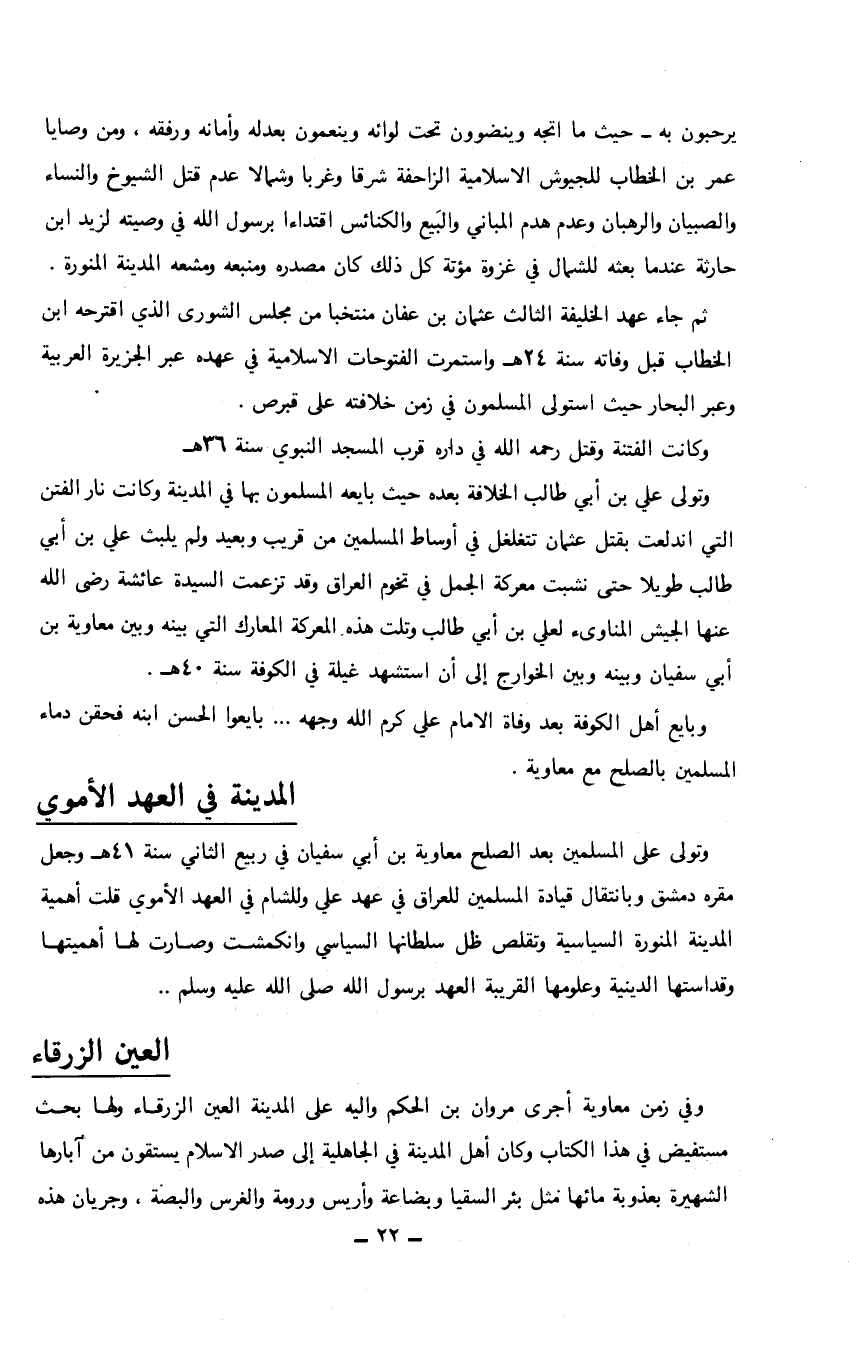 يرحبون به ـ حيث ما اتجه وينضوون تحت لوائه وينعمون بعدله وأمانه ورفقه ، ومن وصايا
عمر بن الخطاب للجيوش الاسلامية الزاحفة شرقا وغربا وشمالا عدم قتل الشيوخ والنساء
والصبيان والرهبان وعدم هدم المباني والبَيع والكنائس اقتداءا برسول الله في وصيته لزيد ابن
حارثة عندما بعثه للشمال في غزوة مؤتة كل ذلك كان مصدره ومنبعه ومشعه المدينة المنورة .
ثم جاء عهد الخليفة الثالث عثمان بن عفان منتخبا من مجلس الشورى الذي اقترحه ابن
الخطاب قبل وفاته سنة ٢٤هـ واستمرت الفتوحات الاسلامية في عهده عبر الجزيرة العربية
وعبر البحار حيث استولى المسلمون في زمن خلافته على قبرص .
وكانت الفتنة وقتل رحمه الله في داره قرب المسجد النبوي سنة ٣٦هـ
وتولى علي بن أبي طالب الخلافة بعده حيث بايعه المسلمون بها في المدينة وكانت نار الفتن
التي اندلعت بقتل عثمان تتغلغل في أوساط المسلمين من قريب وبعيد ولم يلبث علي بن أبي
طالب طويلا حتى نشبت معركة الجمل في تخوم العراق وقد تزعمت السيدة عائشة رضى الله
عنها الجيش المناوىء لعلي بن أبي طالب وتلت هذه المعركة المعارك التي بينه وبين معاوية بن
أبي سفيان وبينه وبين الخوارج إلى أن استشهد غيلة في الكوفة سنة ٤٠هـ .
وبايع أهل الكوفة بعد وفاة الامام علي كرم الله وجهه ... بايعوا الحسن ابنه فحقن دماء
المسلمين بالصلح مع معاوية .
المدينة في العهد الأموي
وتولى على المسلمين بعد الصلح معاوية بن أبي سفيان في ربيع الثاني سنة ٤١هـ وجعل
مقره دمشق وبانتقال قيادة المسلمين للعراق في عهد علي وللشام في العهد الأموي قلت أهمية
المدينة المنورة السياسية وتقلص ظل سلطانها السياسي وانكمشت وصارت لها أهميتها
وقداستها الدينية وعلومها القريبة العهد برسول الله صلى الله عليه وسلم ..
العين الزرقاء
وفي زمن معاوية أجرى مروان بن الحكم واليه على المدينة العين الزرقاء ولها بحث
مستفيض في هذا الكتاب وكان أهل المدينة في الجاهلية إلى صدر الاسلام يستقون من آبارها
الشهيرة بعذوبة مائها مثل بئر السقيا وبضاعة وأريس ورومة والغرس والبصة ، وجريان هذه
ـ ٢٢ ـ